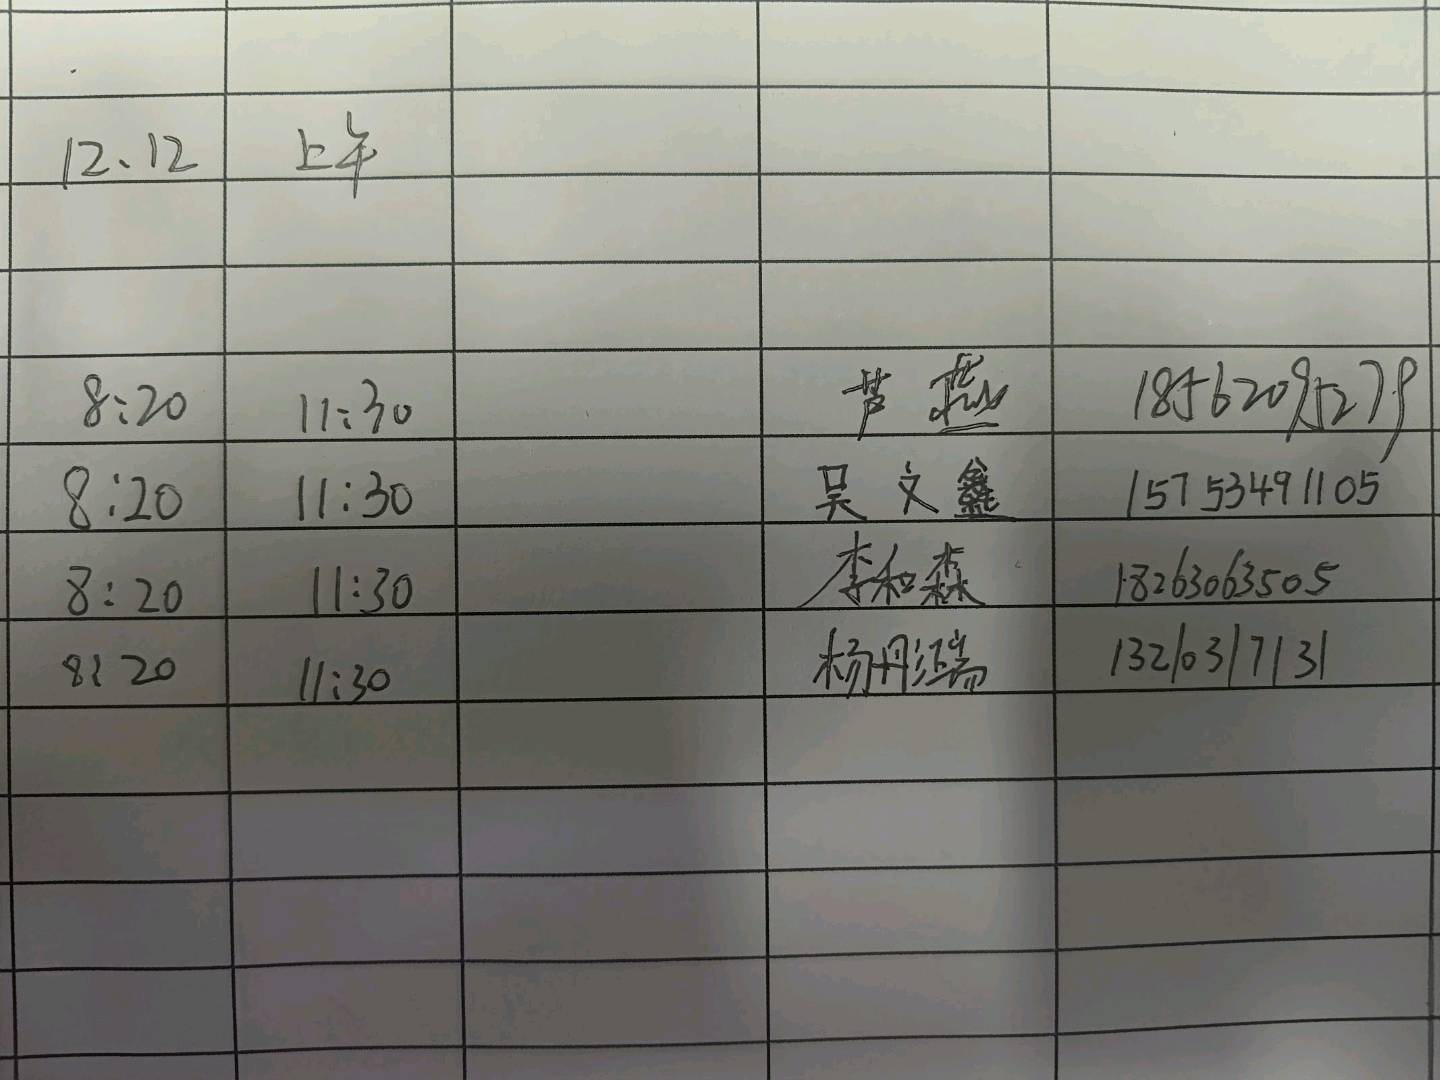 12、12 上午
8:20 11:30 芦燕 18562095279
8:20 11:30 吴文鑫 15753491105
8:20 11:30 李和森 18263063505
8:20 11:30 杨丹鸿 13210317131